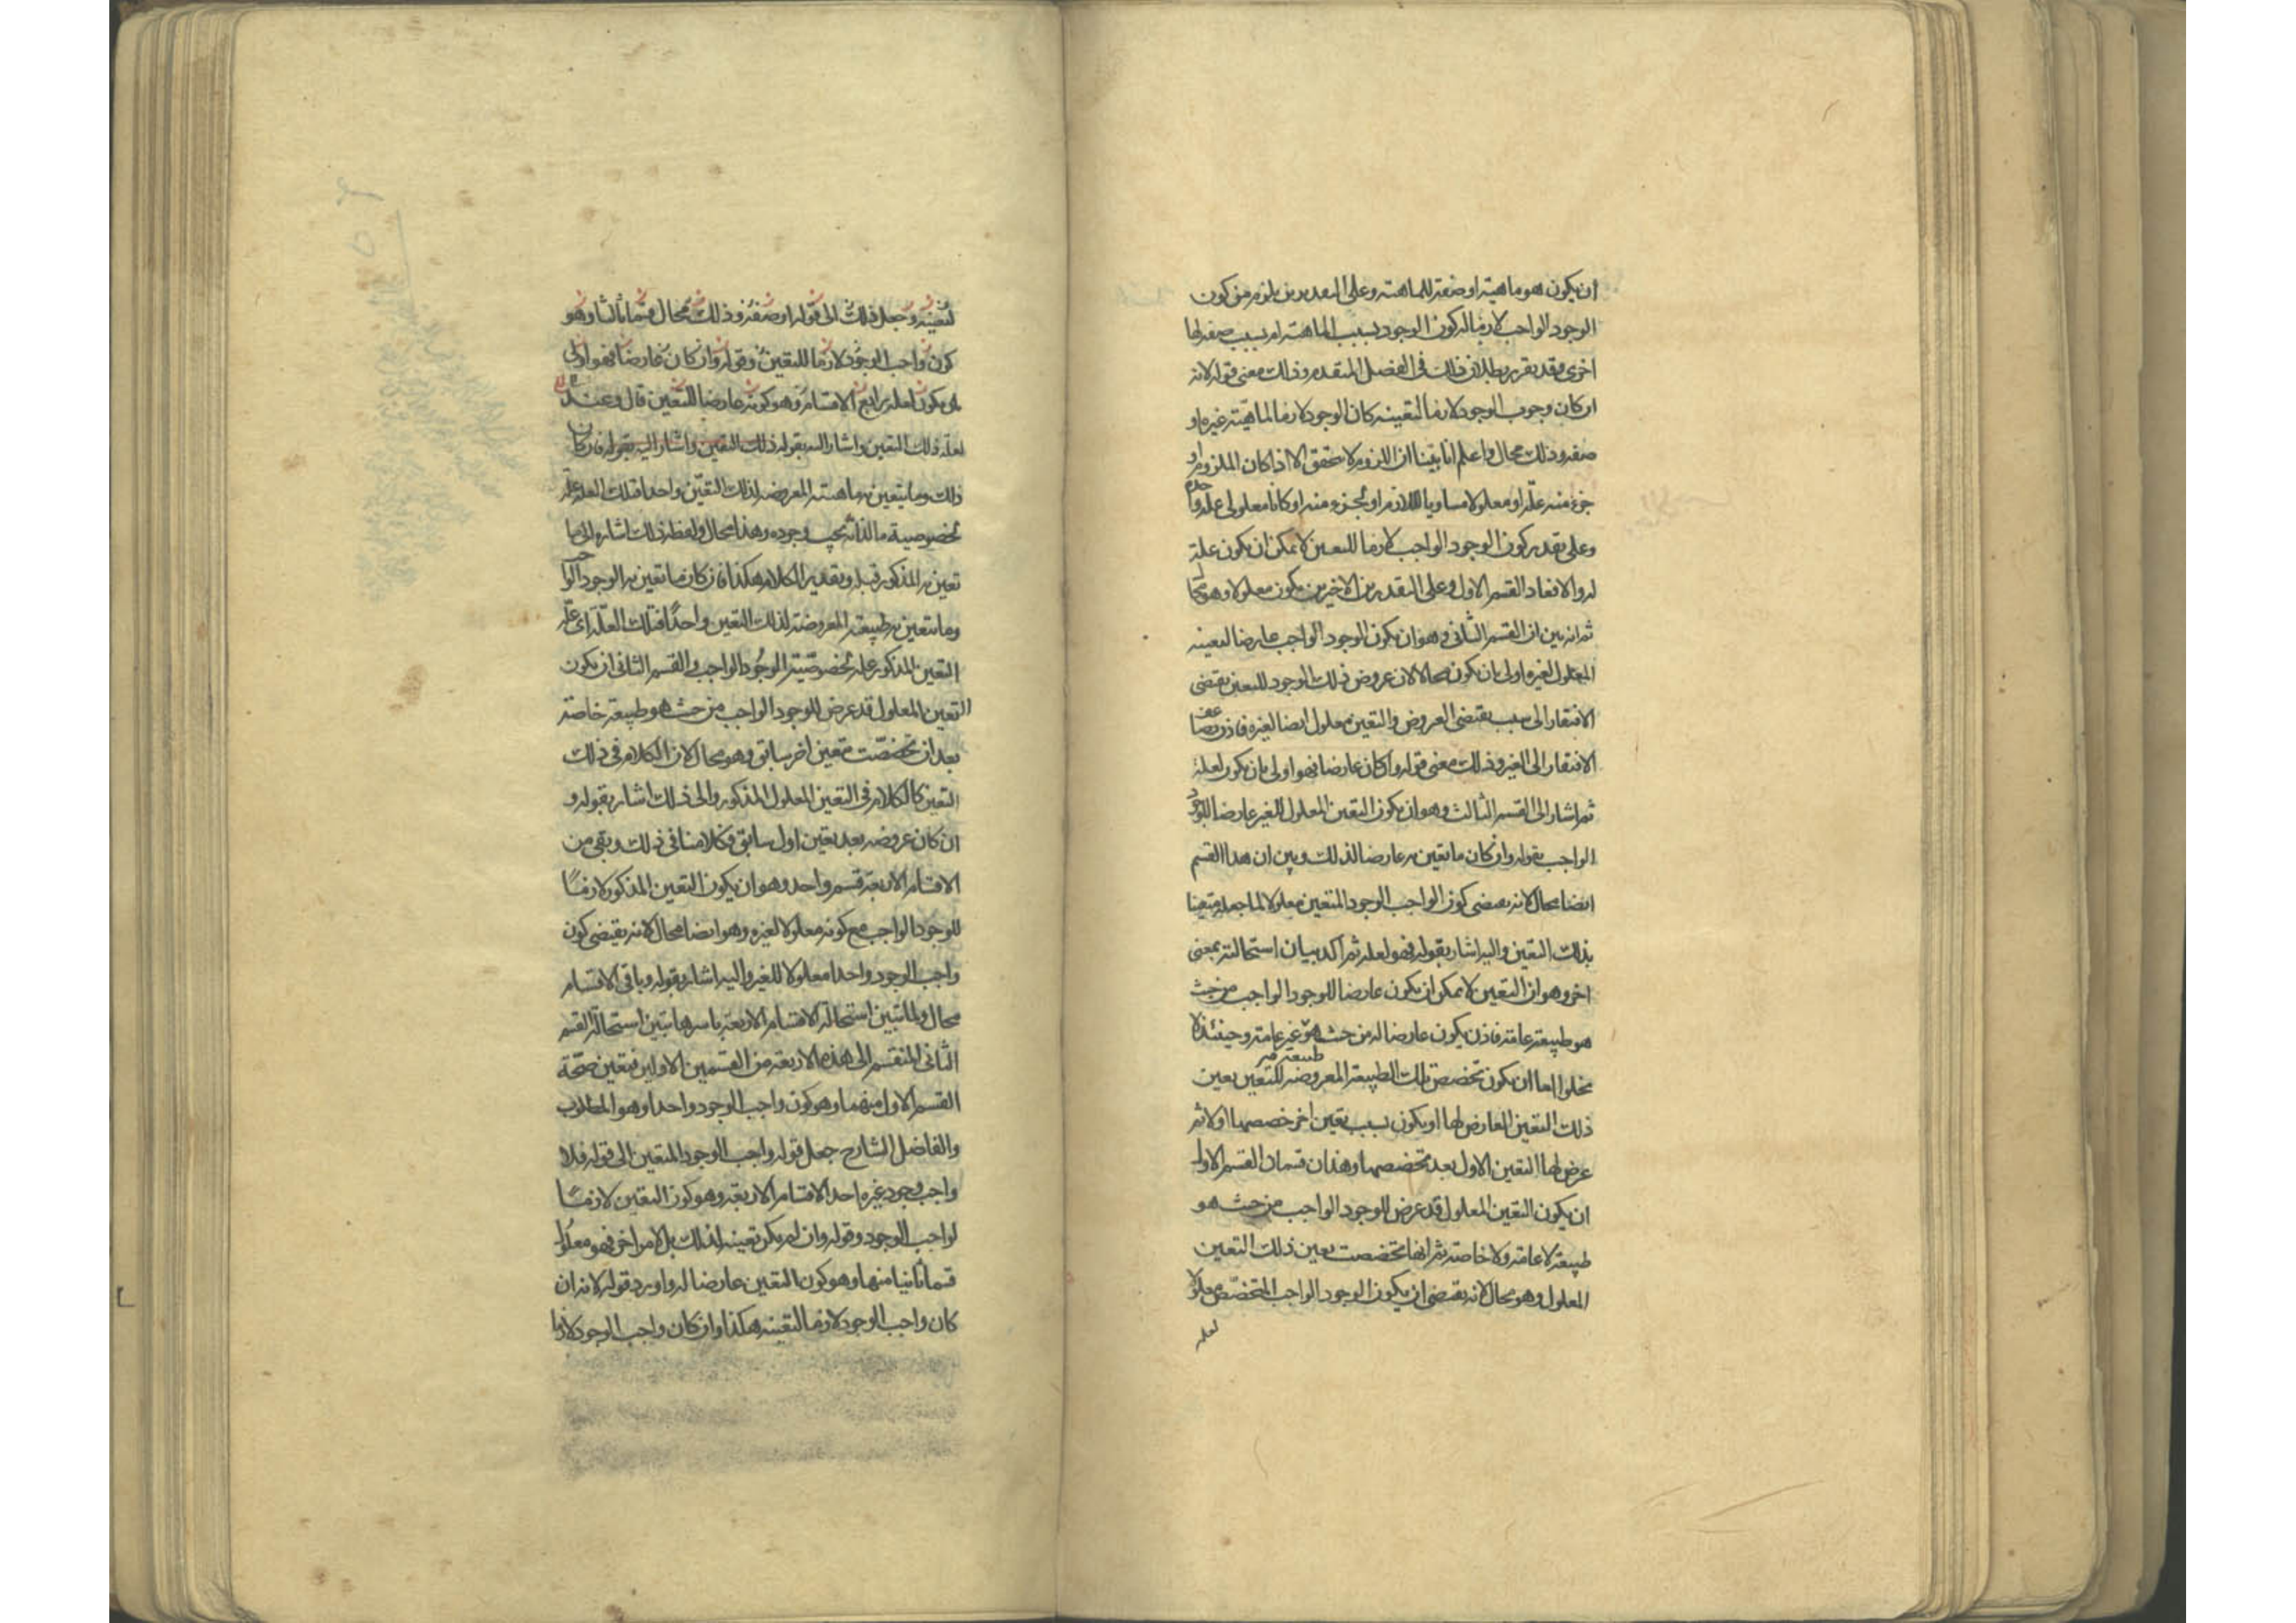 ان يكون هو ماهيته او صفة للماهية وعلى التقديرين يلزم من كون
الوجود الواجب لازما له كون الوجود بسبب الماهية او بسبب صفة لها
اخرى وقد تقرر بطلان ذلك في الفصل المتقدم وذلك معنى قوله لانه
ان كان وجوب الوجود لازما لتعينه كان الوجود لازما لماهيته غيره او
صفة وذلك محال واعلم انا بينا ان اللزوم لا يتحقق الا اذا كان الملزوم او
جزء منه علة او معلولا مساويا للازم او لجزء منه او كانا معلولي علة واحدة
وعلى تقدير كون الوجود الواجب لازما للتعين لا يمكن ان يكون علة
له والا فعاد القسم الاول وعلى التقديرين الاخيرين يكون معلولا وهو محال
ثم انه بين ان القسم الثاني وهو ان يكون الوجود الواجب عارضا لتعينه
المعلول لغيره اولى بان يكون محالا لان عروض ذلك الوجود للتعين يقتضي
الافتقار الى سبب يقتضي العروض والتعين معلول ايضا لغيره فاذن تضاعف
الافتقار الى الغير وذلك معنى قوله وان كان عارضا فهو اولى بان يكون لعلة
ثم اشار الى القسم الثالث وهو ان يكون التعين المعلول للغير عارضا للوجود
الواجب بقوله وان كان ما تعين به عارضا لذلك وبين ان هذا القسم
ايضا محال لانه يقتضي كون الواجب الوجود المتعين معلولا لما جعله متعينا
بذلك التعين واليه اشار بقوله فهو لعلة ثم اكد بيان استحالته بمعنى
اخر وهو ان التعين لا يمكن ان يكون عارضا للوجود الواجب من حيث
هو طبيعة عامة فاذن يكون عارضا له من حيث هو طبيعة غير عامة وحينئذ لا
يخلو اما ان يكون تخصص تلك الطبيعة المعروضة للتعين بعين
ذلك التعين العارض لها او يكون بسبب تعين اخر خصصها اولا ثم
عرض لها التعين الاول بعد تخصصها وهذان قسمان القسم الاول
ان يكون التعين المعلول قد عرض للوجود الواجب من حيث هو
طبيعة لا عامة ولا خاصة ثم انها تخصصت بعين ذلك التعين
المعلول وهو محال لانه يقتضي ان يكون الوجود الواجب المتخصص معلولا
لعلة
لتعينه وجعل ذلك الى قوله او صفة وذلك محال قسما ثالثا وهو
كون واجب الوجود لازما للتعين وقوله وان كان عارضا فهو اولى
بان يكون لعلة رابع الاقسام وهو كونه عارضا للتعين قال وعند
لعلة ذلك التعين واشار اليه بقوله ذلك التعين واشار اليه بقوله فان كان
ذلك وما يتعين به ماهيته المعروضة لذلك التعين واحدا فتلك العلة علة
لخصوصية ما لذاته يجب وجوده وهذا محال ولفظة ذلك اشارة الى ما
تعين به المذكور قبله وتقدير الكلام هكذا فان كان ما تعين به الوجود الواجب
وما يتعين به طبيعته المعروضة لذلك التعين واحدا فتلك العلة اي علة
التعين المذكور علة لخصوصية الوجود الواجب والقسم الثاني ان يكون
التعين المعلول قد عرض للوجود الواجب من حيث هو طبيعة خاصة
بعد ان تخصصت بتعين اخر سابق وهو محال لان الكلام في ذلك
التعين كالكلام في التعين المعلول المذكور والى ذلك اشار بقوله و
ان كان عروضه بعد تعين اول سابق فكلامنا في ذلك وبقي من
الاقسام الاربعة قسم واحد وهو ان يكون التعين المذكور لازما
للوجود الواجب مع كونه معلولا لغيره وهو ايضا محال لانه يقتضي كون
واجب الوجود واحدا معلولا للغير واليه اشار بقوله وباقي الاقسام
محال ولما تبين استحالة الاقسام الاربعة باسرها تبين استحالة القسم
الثاني المنقسم الى هذه الاربعة من القسمين الاولين فتعين صحة
القسم الاول منهما وهو كون واجب الوجود واحدا وهو المطلوب
والفاضل الشارح جعل قوله واجب الوجود المتعين الى قوله فلا
واجب وجود غيره احد الاقسام الاربعة وهو كون التعين لازما
لواجب الوجود وقوله وان لم يكن تعينه لذلك بل لامر اخر فهو معلول
قسما ثانيا منها وهو كون التعين عارضا له واورد قوله لانه ان
كان واجب الوجود لازما لتعينه هكذا وان كان واجب الوجود لازما